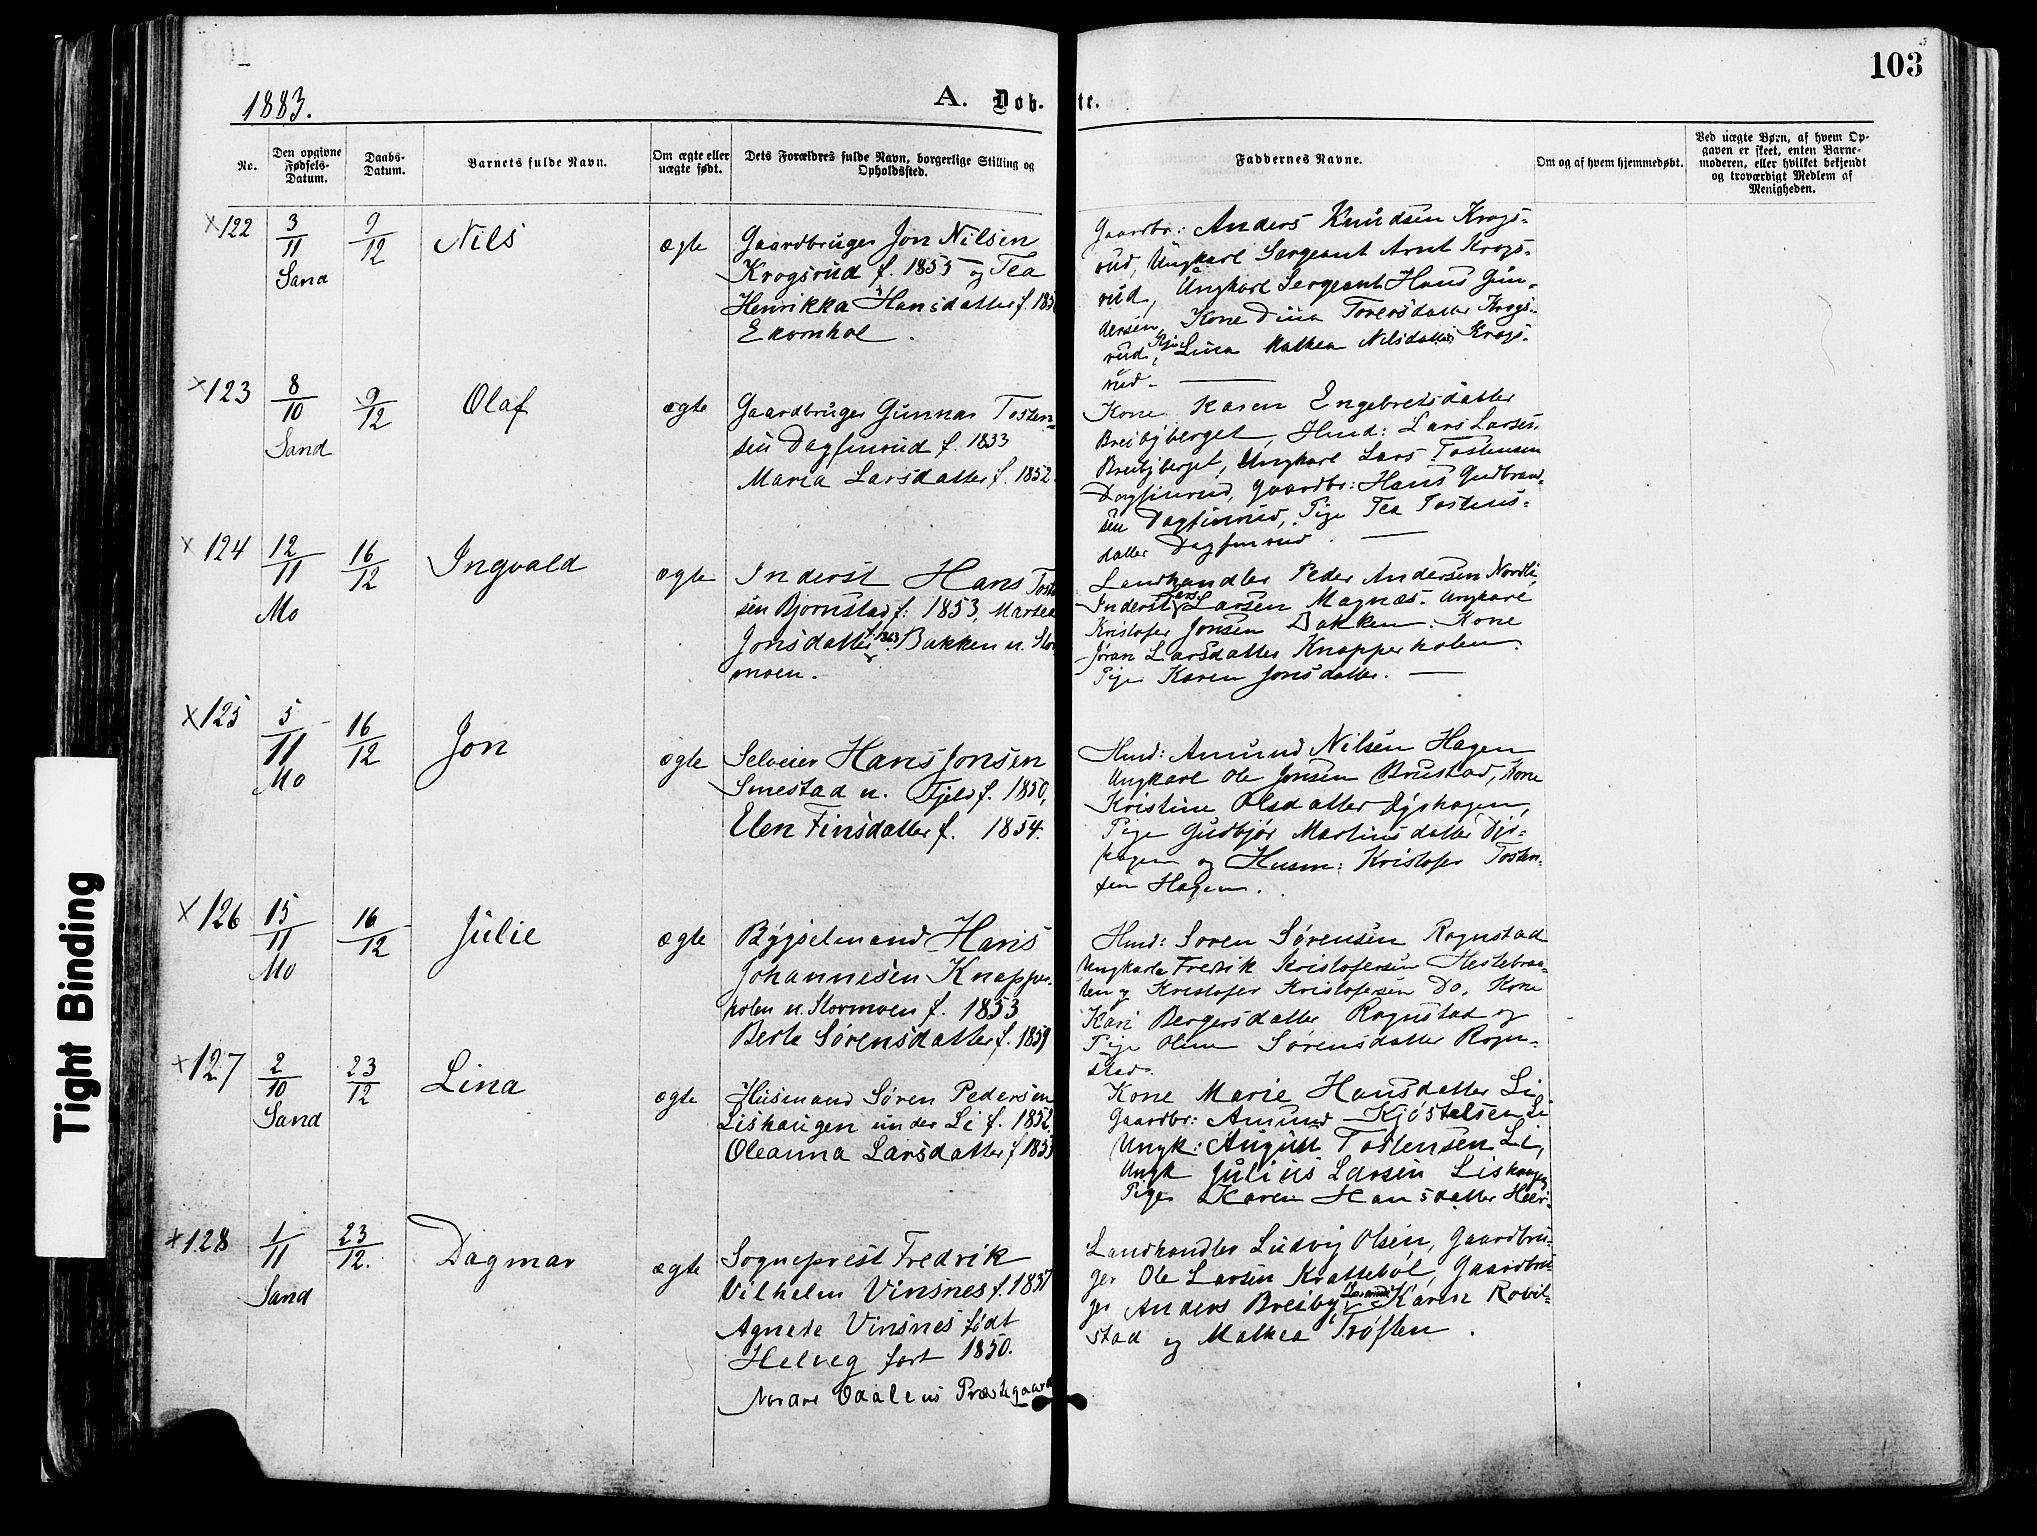 103
1883.
A. Døb- te.
No.
Den opgivne Fødsels-Datum.
Daabs-Datum.
Barnets fulde Navn.
Om ægte eller uægte født.
Dets Forældres fulde Navn, borgerlige Stilling og Opholdssted.
Faddernes Navne.
Om og af hvem hjemmedøbt.
Ved uægte Børn, af hvem Opgaven er skeet, enten Barnemoderen, eller hvilket bekjendt og troværdigt Medlem af Menigheden.
×122 3/11 Sand 9/12 Nils ægte
Gaardbruger Jon Nilsen
Krogsrud f. 1855 og Tea
Henrikka Hansdatter f. 185
Ekornhol.
Gaardbr: Anders Knudsen Krogs-
rud, Ungkarl Sergeant Arnt Krogs-
rud, Ungkarl Sergeant Hans Gun-
dersen, Kone Dina Toresdatter Krogs-
rud, Pige Lina Mathea Nilsdatter Krogs-
rud. —
×123 8/10 Sand 9/12 Olaf ægte
Gaardbruger Gunnar Tosten-
sen Dagfinrud f. 1833
Maria Larsdatter f. 1852.
Kone Karen Engebretsdatter
Breibyberget, Husd: Lars Larsen
Breibyberget, Ungkarl Lars Tostensen
Dagfinrud, Gaardbr: Hans Gudbrand-
sen Dagfinrud, Pige Tea Tostens-
datter Dagfinrud. —
×124 12/11 Mo 16/12 Ingvald ægte
Inderst Hans Tost
sen Bjørnstad f. 1853, Martea
Jonsdatter f. 1863. Bakken u. Stor
moen.
Landhandler Peder Andersen Nordli,
Inderst Lars Larsen Magnæs. Ungkarl
Kristofer Jonsen Bakken. Kone
Jøran Larsdatter Knapperholen.
Pige Karen Jonsdatter. —
×125 5/11 Mo 16/12 Jon ægte
Selveier Hans Jonsen
Smestad u. Fjeld f. 1850,
Elen Finsdatter f. 1854.
Husd: Amund Nilsen Hagen
Ungkarl Ole Jonsen Brustad, Kone
Kristine Olsdatter Dyshagen,
Pige Gudbjør Martinsdatter Dys-
hagen og Husm: Kristofer Tosten-
sen Hagen.
×126 15/11 Mo 16/12 Julie ægte
Bygselmand Hans
Johannesen Knapper-
holen u. Stormoen f. 1853
Berte Sørensdatter f. 1859
Husd: Soren Sørensen Rognstad
Ungkarle Fredrik Kristofersen Hestebraa-
ten og Kristofer Kristofersen Do. Kone
Kari Bergersdatter Rognstad og
Pige Oline Sørensdatter Rogn-
stad.
×127 2/10 Sand 23/12 Lina ægte
Husmand Søren Pedersen
Lishaugen under Li f. 1852.
Oleanna Larsdatter f 1853
Kone Marie Hansdatter Li
Gaardbr: Amund Kjøstelsen Li
Ungk: August Tostensen Li,
Ungk Julius Larsen Lishaugen
Pige Karen Hansdatter
×128 1/11 Sand 23/12. Dagmar ægte
Sogneprest Fredrik
Vilhelm Vinsnes f. 1837
Agnete Vinsnes født
Helveg født 1850.
Nordre Odalens Præstegaard
Landhandler Ludvig Olsen, Gaardbru-
ger Ole Larsen Kratteböl, Gaardbru-
ger Anders Breiby, Karen Robil-
stad og Mathea Trøften.
Tight Binding